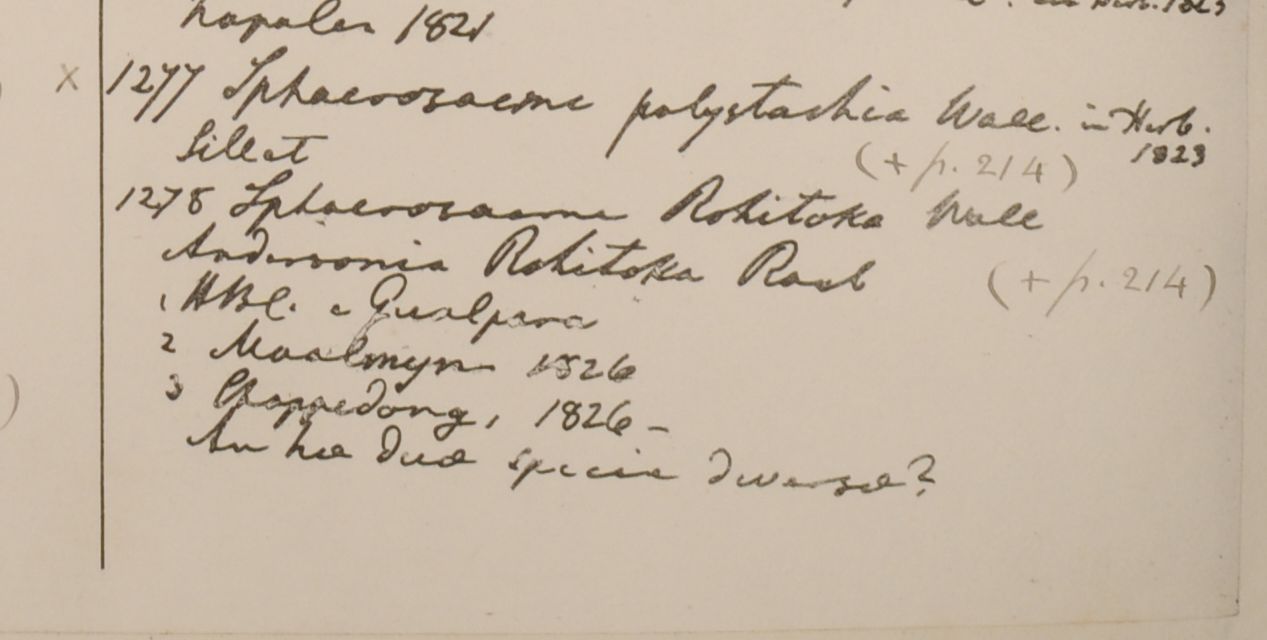 Napalia 1821
x 1277 Sphaerosacme polystachia Wall. in Herb. 1823
Sillet (+ p. 214)
1278 Sphaerosacme Rohitoka Wall
Andersonia Rohitoka Roxb (+ p. 214)
1 HBC. e Gualpara
2 Moalmyn 1826
3 Chappedong, 1826 -
An hae duae species diversae?